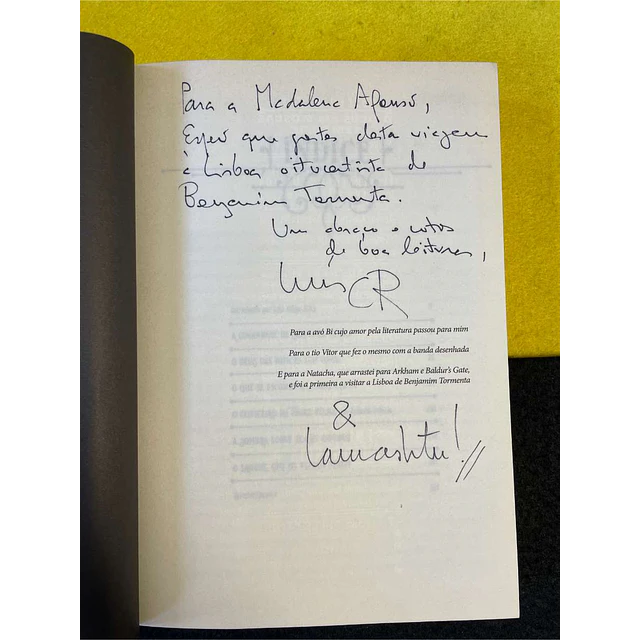 Para a Madalena Afonso,
Espero que gostes desta viagem
à Lisboa oitocentista de
Benjamim Tormenta.
Um abraço e votos
de boa leitura,
Luís CR
Para a avó Bi cujo amor pela literatura passou para mim
Para o tio Vitor que fez o mesmo com a banda desenhada
E para a Natacha, que arrastei para Arkham e Baldur's Gate,
e foi a primeira a visitar a Lisboa de Benjamim Tormenta
&
Lamashtu!